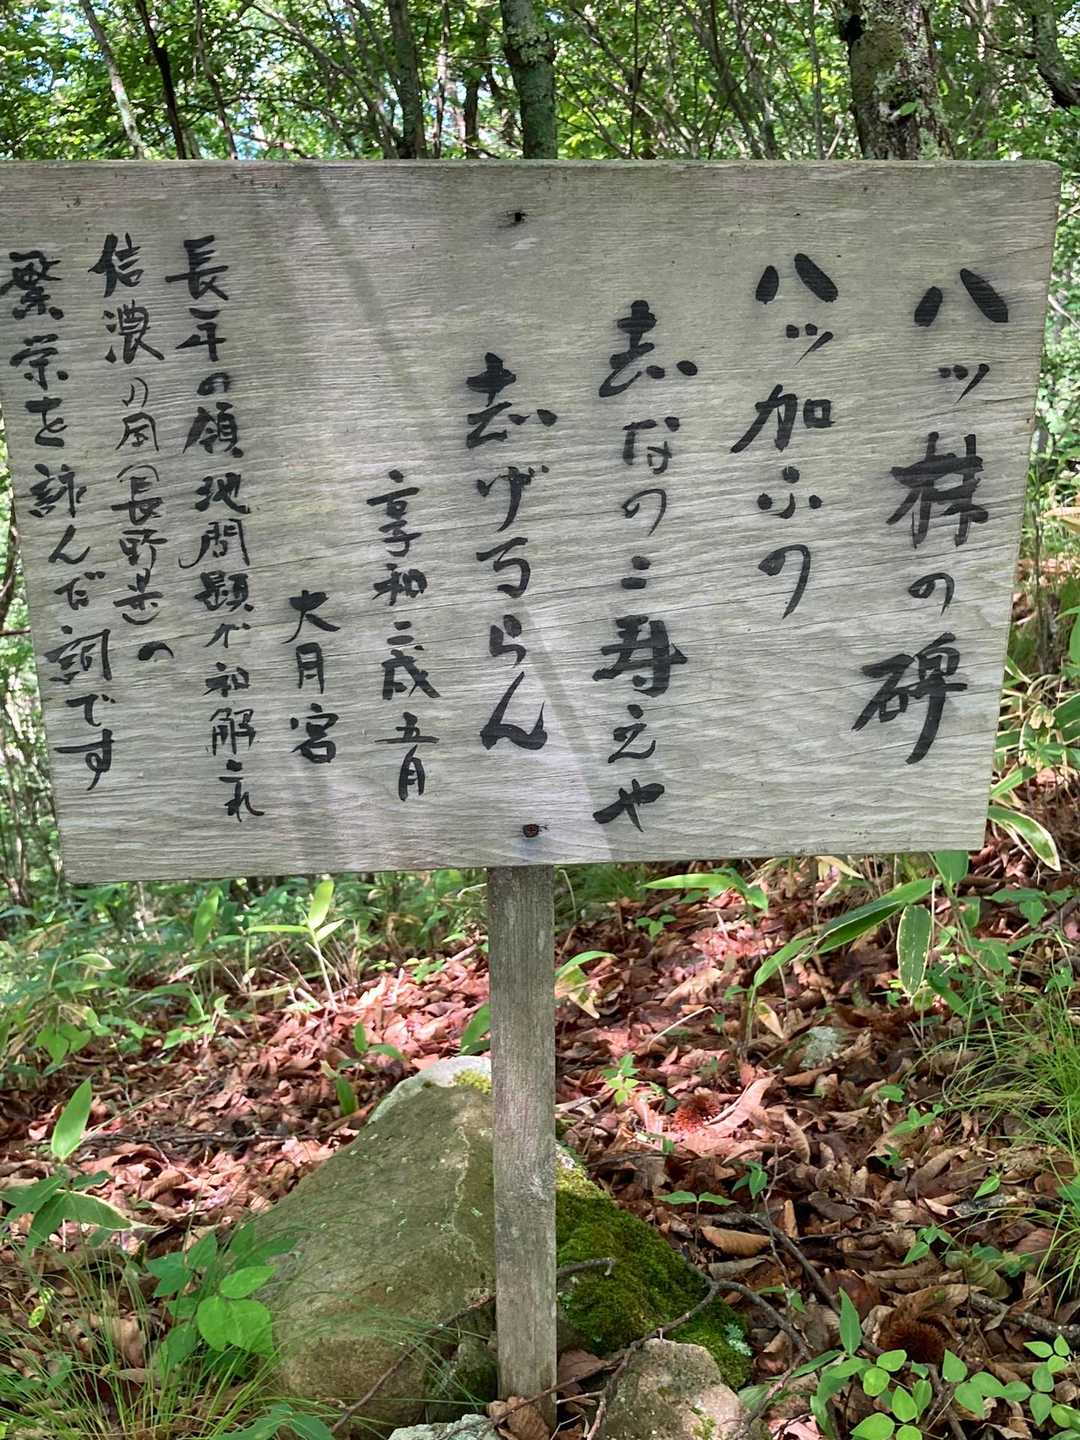 八ッ株の碑
八ッ加ふの
志なのこ寿えや
志げるらん
享和二歳五月
大月宮
長年の領地問題が和解され
信濃の国(長野県)の
繁栄を詠んだ詞です